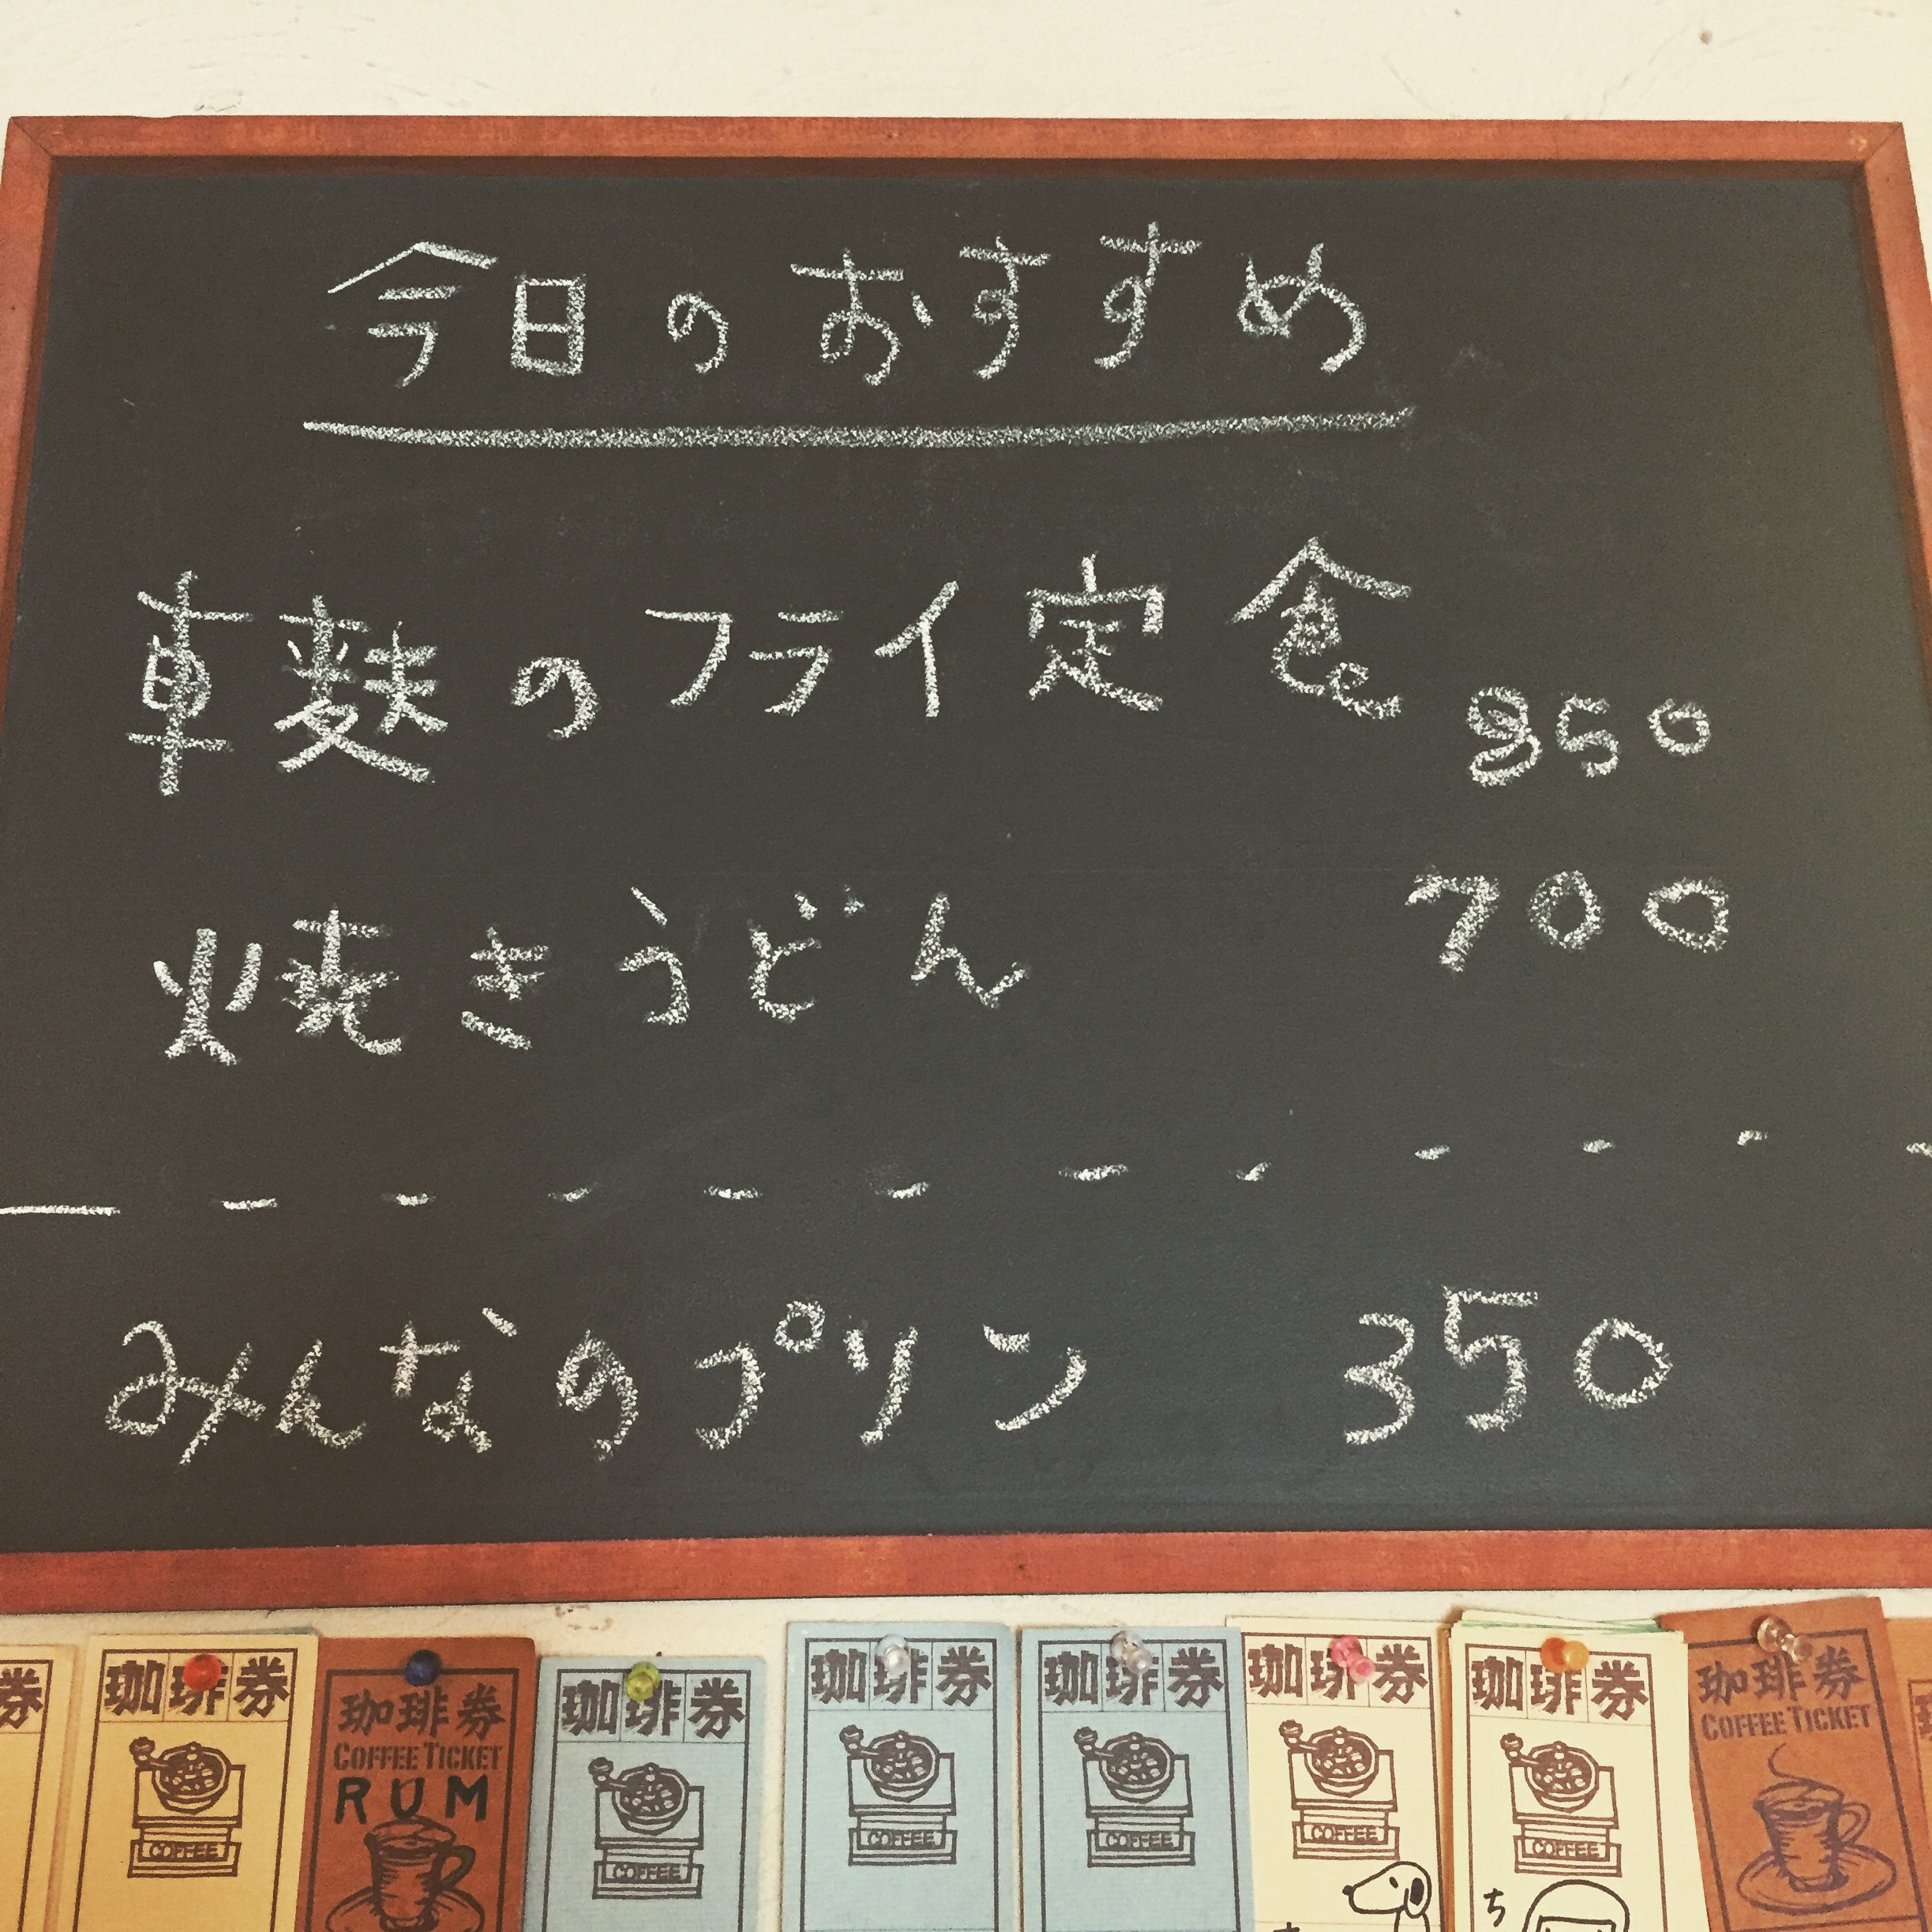 今日のおすすめ
車麩のフライ定食 850
焼きうどん 700
みんなのプリン 350
券
珈琲券
COFFEE
珈琲券
COFFEE TICKET
RUM
珈琲券
COFFEE
珈琲券
COFFEE
珈琲券
COFFEE
珈琲券
COFFEE
珈琲券
COFFEE
ち
珈琲券
COFFEE TICKET